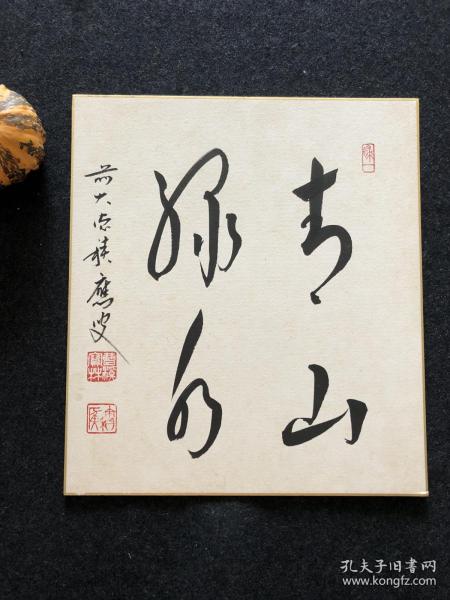 青山
緑水
前大徳積應叟
孔夫子旧书网
www.kongfz.com